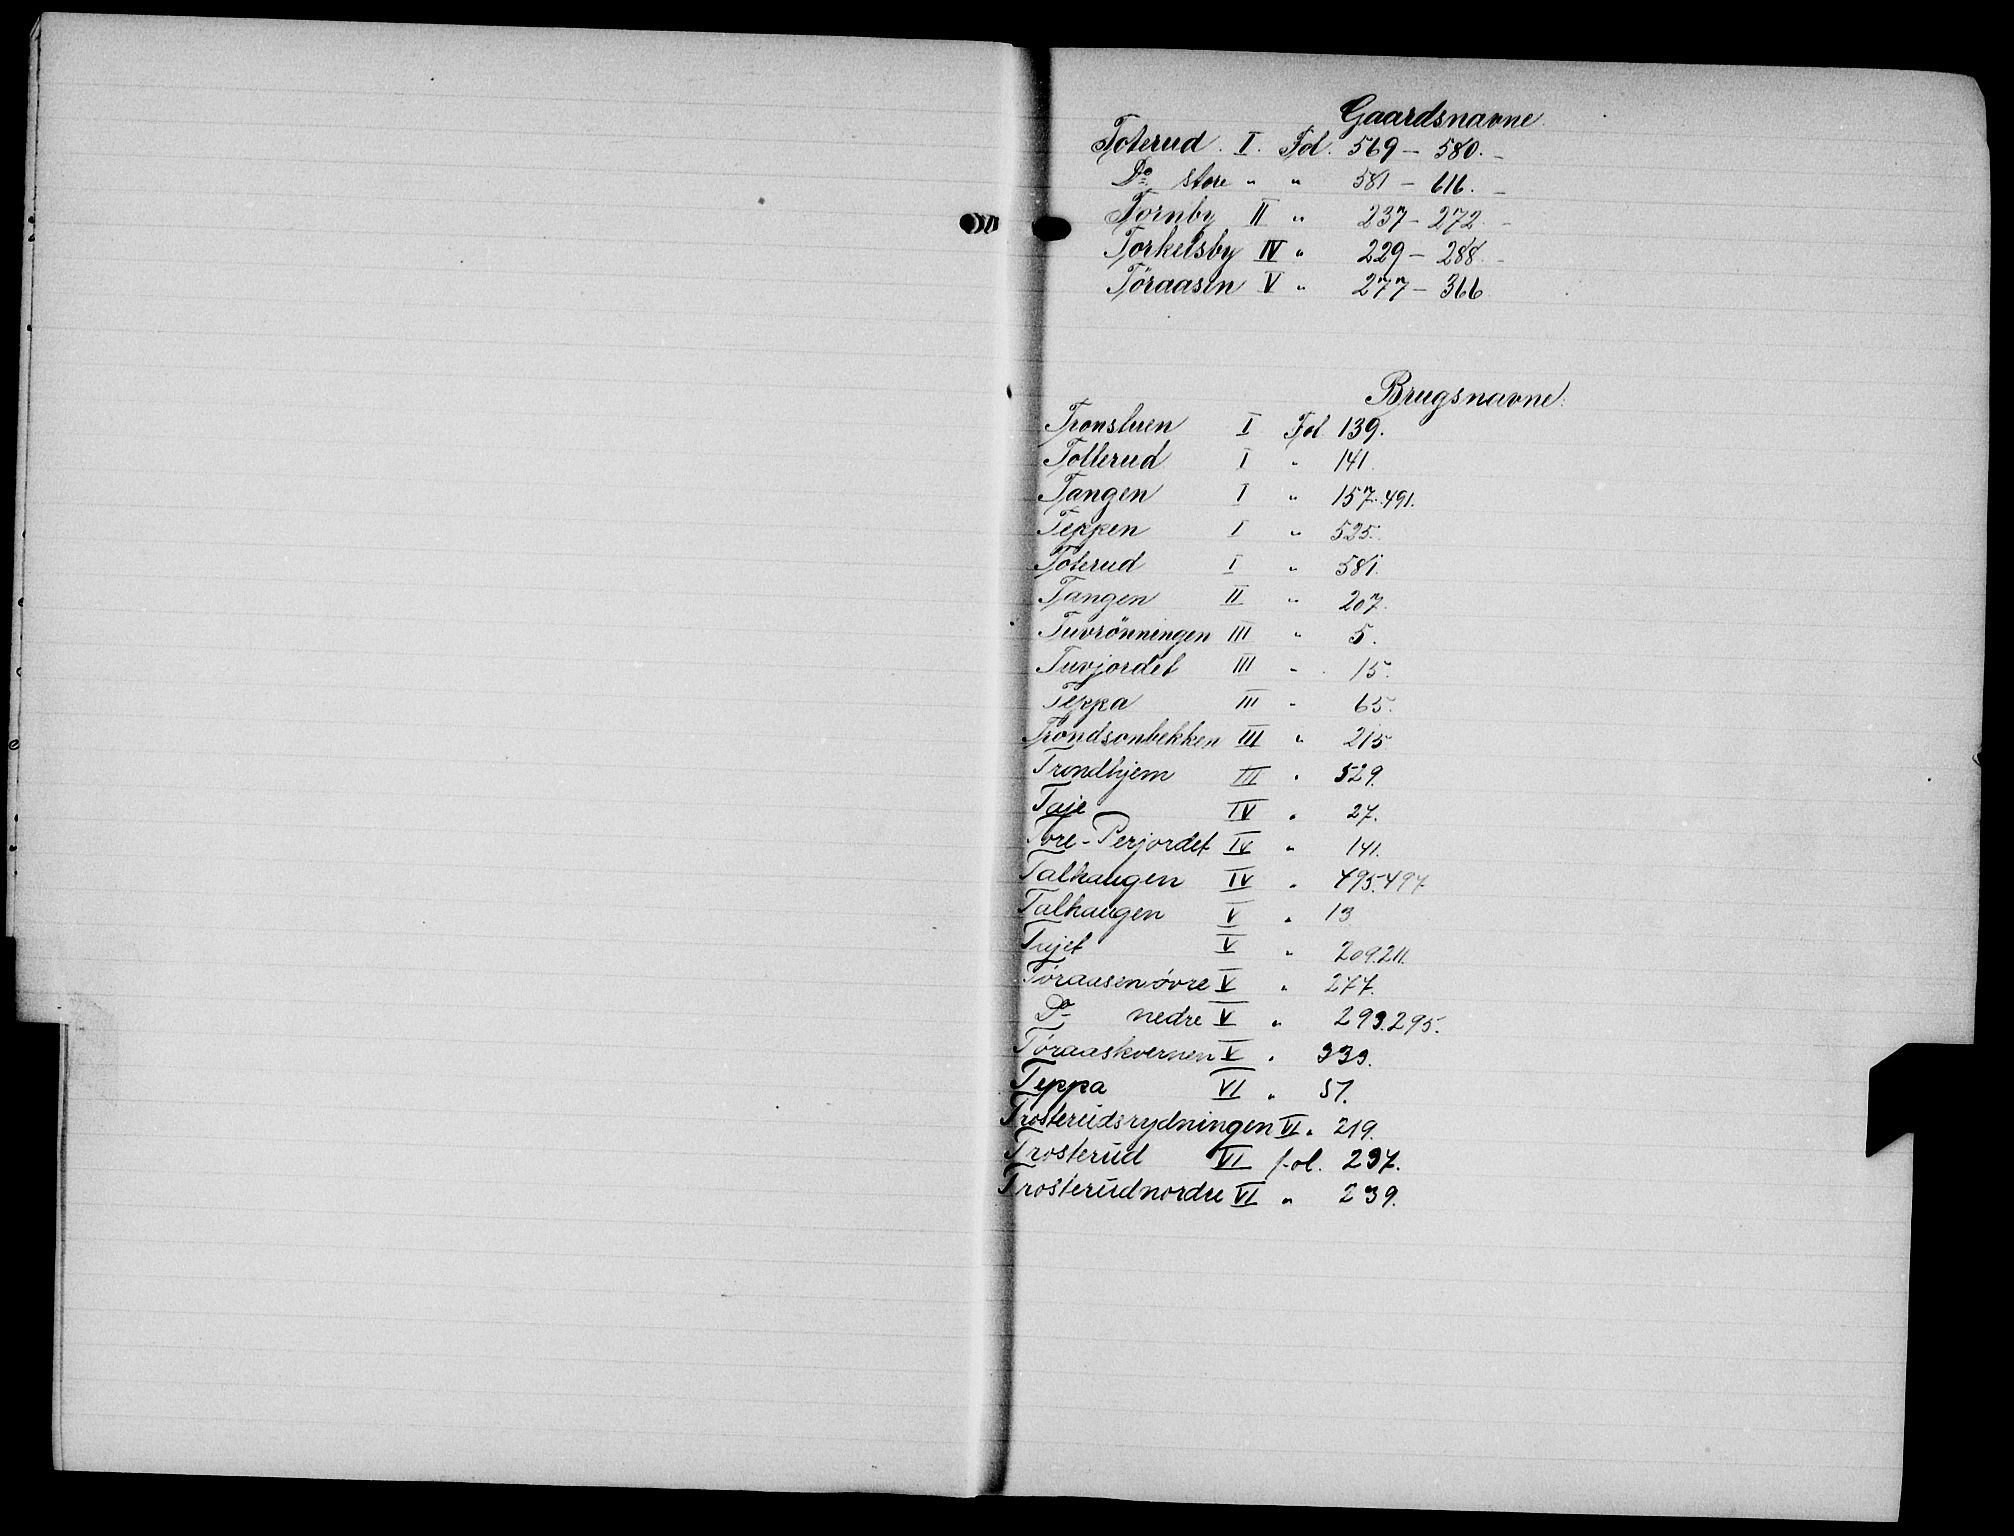 Gaardsnavne
Toterud. I. Fol. 569 - 580. -
Do store " " 581 - 616. -
Tornby II " 237 - 272. -
Torkelsby IV " 229 - 288. -
Tøraasen V " 277 - 366
Brugsnavne.
Tronstuen I Fol. 139.
Tollerud I " 141.
Tangen I " 157. 491.
Teppen I " 525.
Toterud I " 581.
Tangen II " 207.
Tuvrönningen III " 5.
Tuvjordet III " 15.
Teppa III " 65.
Trondsonbekken III " 215
Trondhjem III " 529.
Taje IV " 27.
Tore-Perjordet IV " 141.
Talhaugen IV " 495. 497
Talhaugen V " 13
Tujet V " 209. 211.
Tøraasen øvre V " 277.
Do nedre V " 293. 295.
Tøraaskvernen V " 333.
Teppa VI " 51.
Trosterudsrydningen VI " 219.
Trosterud VI fol. 237.
Trosterud nordre VI " 239.